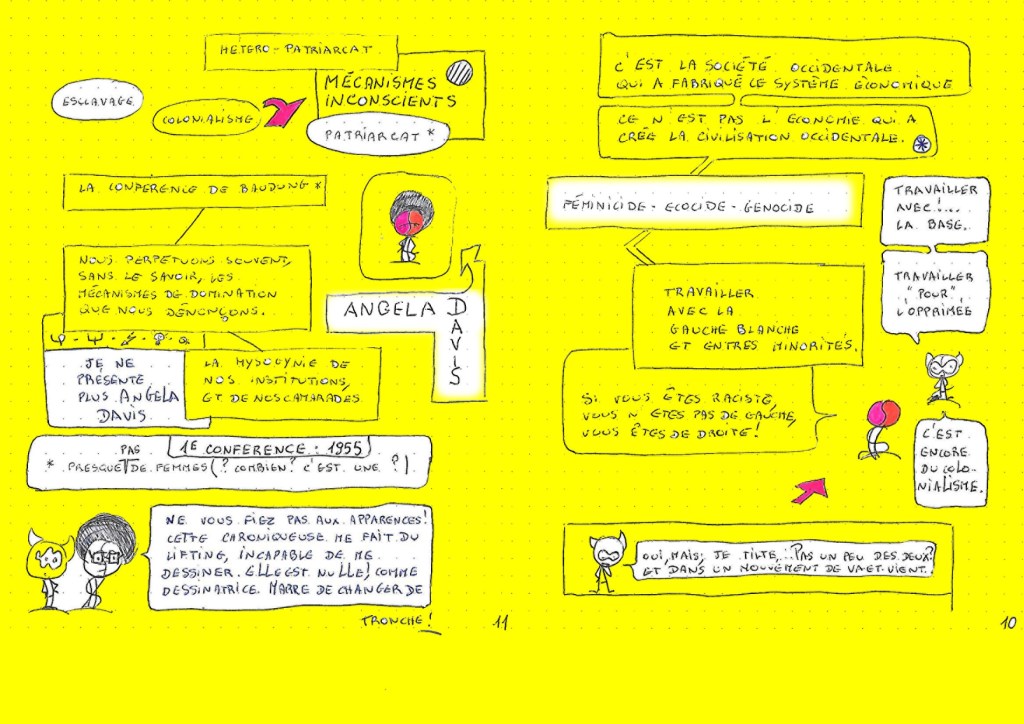 HETERO-PATRIARCAT
MÉCANISMES
INCONSCIENTS
ESCLAVAGE
COLONIALISME
PATRIARCAT *
LA CONFERENCE DE BAUDUNG *
NOUS PERPÉTUONS SOUVENT,
SANS LE SAVOIR, LES
MÉCANISMES DE DOMINATION
QUE NOUS DÉNONÇONS.
ANGELA
DAVIS
JE NE
PRÉSENTE
PLUS ANGELA
DAVIS
LA MYSOGYNIE DE
NOS INSTITUTIONS,
ET DE NOS CAMARADES
1E CONFERENCE : 1955
PAS
* PRESQUE DE FEMMES (? COMBIEN? C'EST UNE ?).
NE VOUS FIEZ PAS AUX APPARENCES!
CETTE CHRONIQUEUSE ME FAIT DU
LIFTING, INCAPABLE DE ME
DESSINER. ELLE EST NULLE! COMME
DESSINATRICE. MARRE DE CHANGER DE
TRONCHE!
11
C'EST LA SOCIÉTÉ OCCIDENTALE
QUI A FABRIQUÉ LE SYSTÈME ÉCONOMIQUE
CE N'EST PAS L'ÉCONOMIE QUI A
CRÉE LA CIVILISATION OCCIDENTALE.
FÉMINICIDE - ECOCIDE - GENOCIDE
TRAVAILLER
AVEC!....
LA BASE..
TRAVAILLER
"POUR"
L'OPPRIMÉE
TRAVAILLER
AVEC LA
GAUCHE BLANCHE
ET ENTRES MINORITÉS.
SI VOUS ÊTES RACISTE,
VOUS N'ÊTES PAS DE GAUCHE,
VOUS ÊTES DE DROITE!
C'EST
ENCORE
DU COLO-
NIALISME.
OUI, MAIS, JE TILTE,... PAS UN PEU DES DEUX?
ET DANS UN MOUVEMENT DE VA ET VIENT.
10